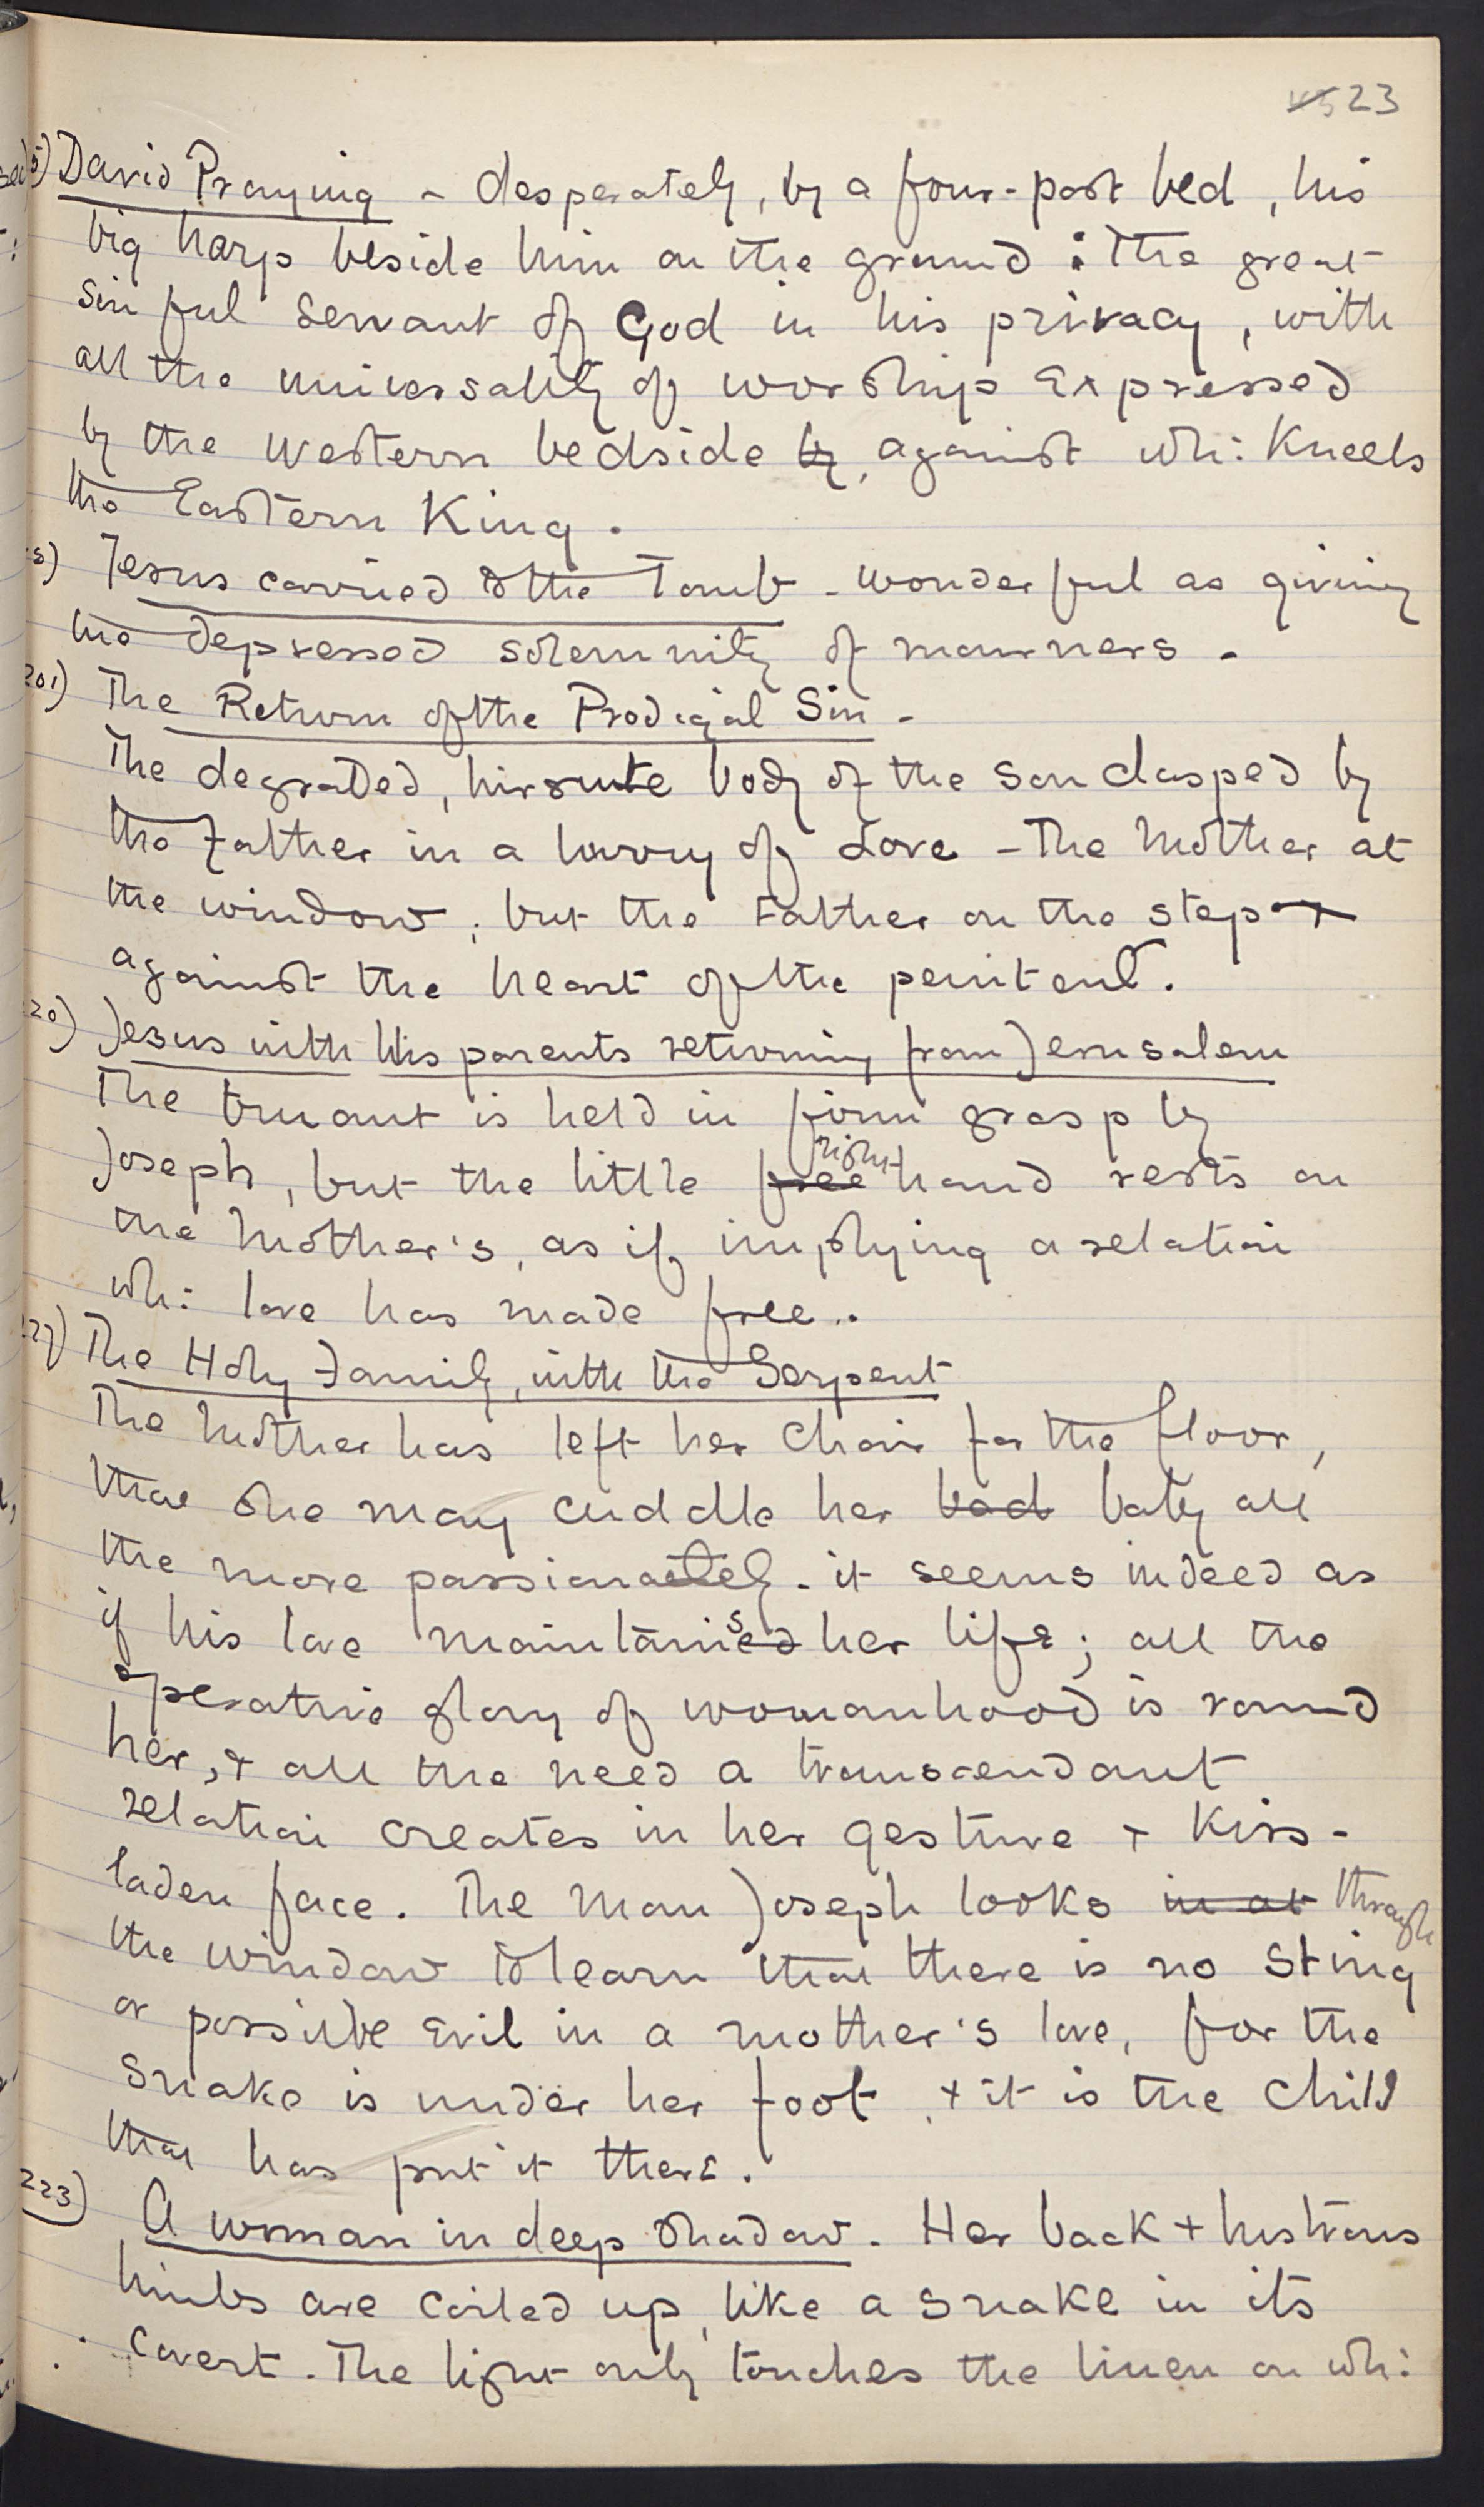 23
5) David Praying - desperately, by a four-post bed, his
big harp beside him on the ground : the great
sinful servant of God in his privacy, with
all the universality of worship expressed
by the Western bedside by, against wh: kneels
the Eastern King.
s) Jesus carried to the Tomb - wonderful as giving
the depressed solemnity of mourners.
201) The Return of the Prodigal Son -
The degraded, hirsute body of the son clasped by
the Father in a luxury of Love - The Mother at
the window; but the Father on the step +
against the heart of the penitent.
220) Jesus with His parents returning from Jerusalem
The truant is held in firm grasp by
Joseph, but the little free right hand rests on
the Mother's, as if implying a relation
wh: love has made free..
227) The Holy Family, with the Serpent
The Mother has left her chair for the floor,
that she may cuddle her bad baby all
the more passionately - it seems indeed as
if his love maintained s her life; all the
operative glory of womanhood is round
her, + all the need a transcendant
relation creates in her gesture + kiss-
laden face. The Man Joseph looks in at through
the window to learn that there is no sting
or possible evil in a mother's love, for the
snake is under her foot, + it is the Child
that has put it there.
223) A woman in deep shadow. Her back + lustrous
limbs are coiled up, like a snake in its
covert. The light only touches the linen on wh: